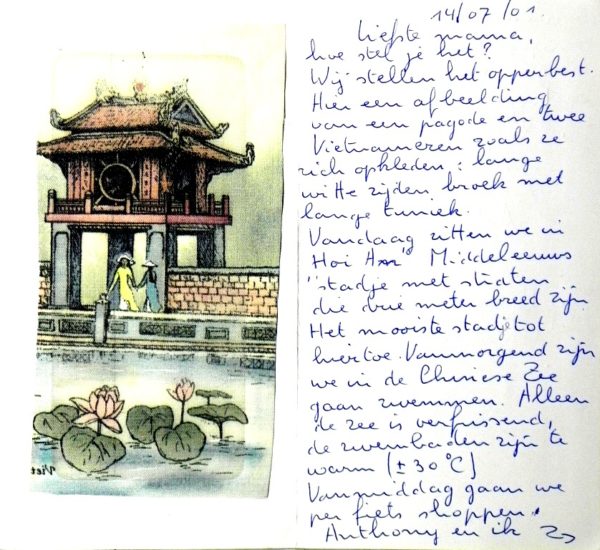 14/07/01.
Liefste mama,
hoe stel je het?
Wij stellen het opperbest.
Hier een afbeelding
van een pagode en twee
Vietnamezen zoals ze
zich opkleden : lange
witte zijden broek met
lange tuniek.
Vandaag zitten we in
Hoi An Middeleeuws
stadje met straten
die drie meter breed zijn.
Het mooiste stadje tot
hiertoe. Vanmorgend zijn
we in de Chinese Zee
gaan zwemmen. Alleen
de zee is verfrissend,
de zwembaden zijn te
warm (± 30 °C)
Vanmiddag gaan we
per fiets shoppen.
Anthony en ik
Viet